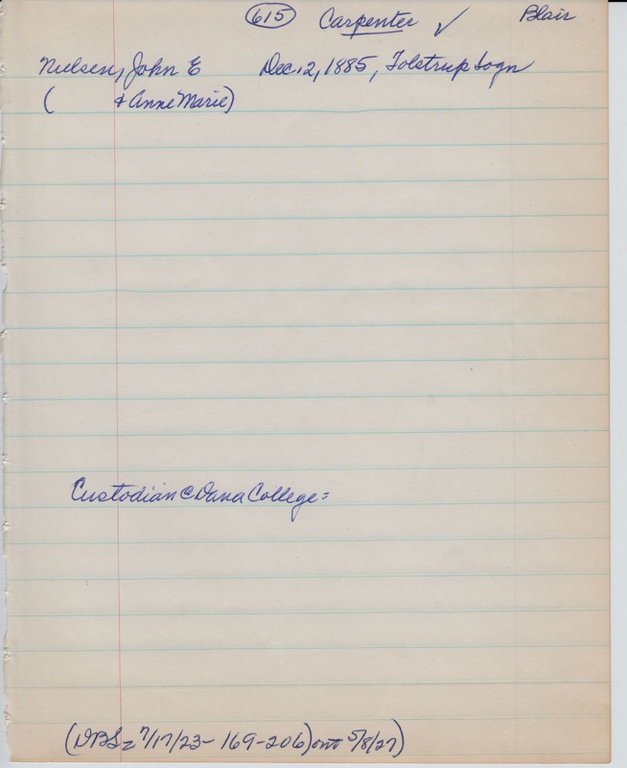 615 Carpenter ✓ Blair
Nielsen, John E Dec. 2, 1885, Tolstrup Sogn
( & Anne Marie)
Custodian @ Dana College =
(DBS = 7/17/23 - 169-206) 5/8/27)